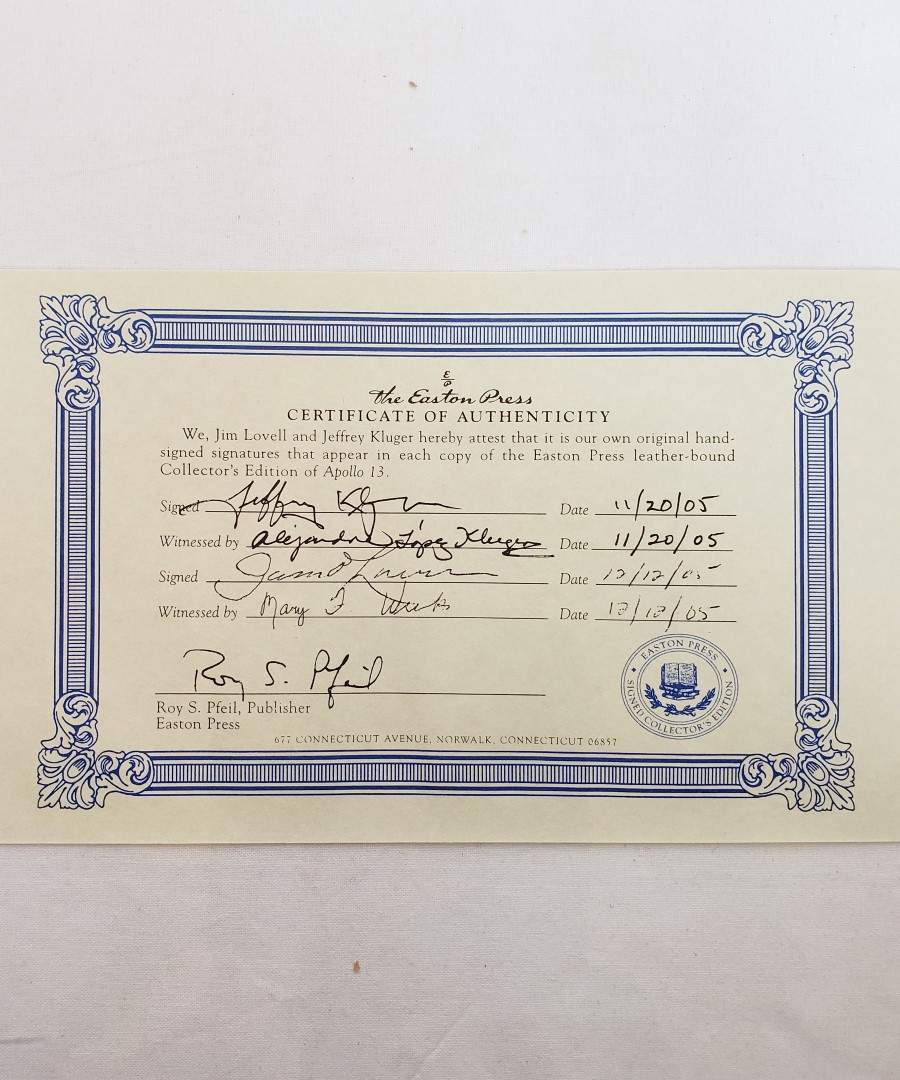 E
P
the Easton Press
CERTIFICATE OF AUTHENTICITY
We, Jim Lovell and Jeffrey Kluger hereby attest that it is our own original hand-
signed signatures that appear in each copy of the Easton Press leather-bound
Collector's Edition of Apollo 13.
Signed Jeffrey Kluger Date 11/20/05
Witnessed by Alejandra López Kluger Date 11/20/05
Signed James Lovell Date 12/12/05
Witnessed by Mary F. Weeks Date 12/12/05
Roy S. Pfeil
Roy S. Pfeil, Publisher
Easton Press
EASTON PRESS
SIGNED COLLECTOR'S EDITION
677 CONNECTICUT AVENUE, NORWALK, CONNECTICUT 06857